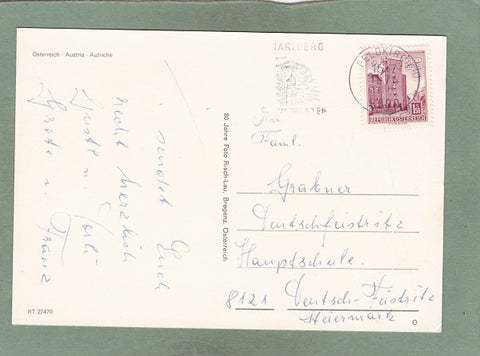 Österreich - Austria - Autriche
sendet Euch
recht herzlich
Gustl u. Poldi
Grete u. Franz
RT 27470
80 Jahre Foto Risch-Lau, Bregenz, Österreich
ARLBERG
REPUBLIK ÖSTERREICH
An
Faml.
Grabner
Deutschfeistritz
Hauptschule.
8121 Deutsch-Feistritz
Steiermark